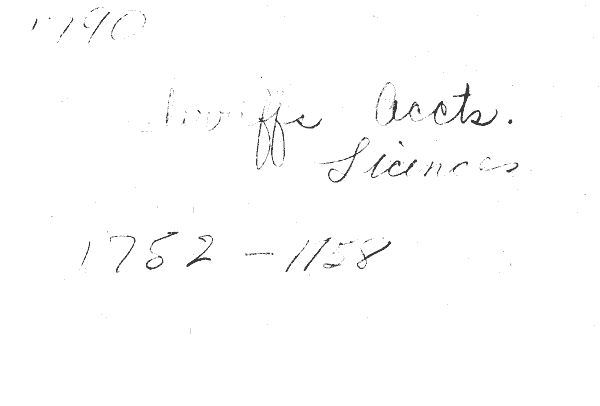 1790
Sheriffs Accts.
Licinces
1752 – 1758